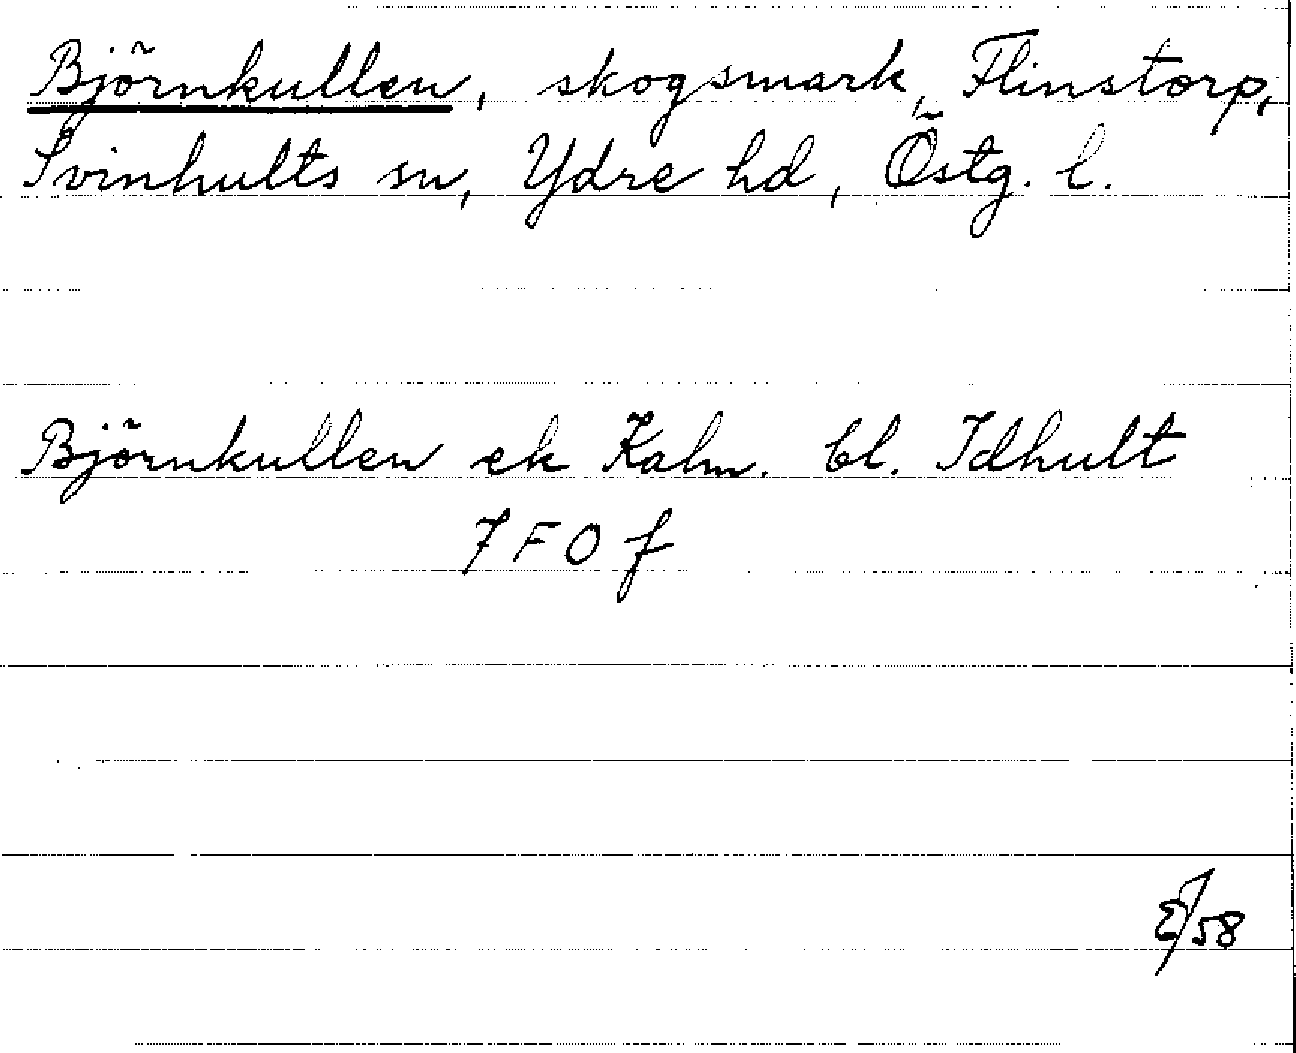 Björnkullen, skogsmark, Flinstorp,
Svinhults sn, Ydre hd, Östg. l.
Björnkullen ek Kalm. bl. Idhult
7 F 0 f
58